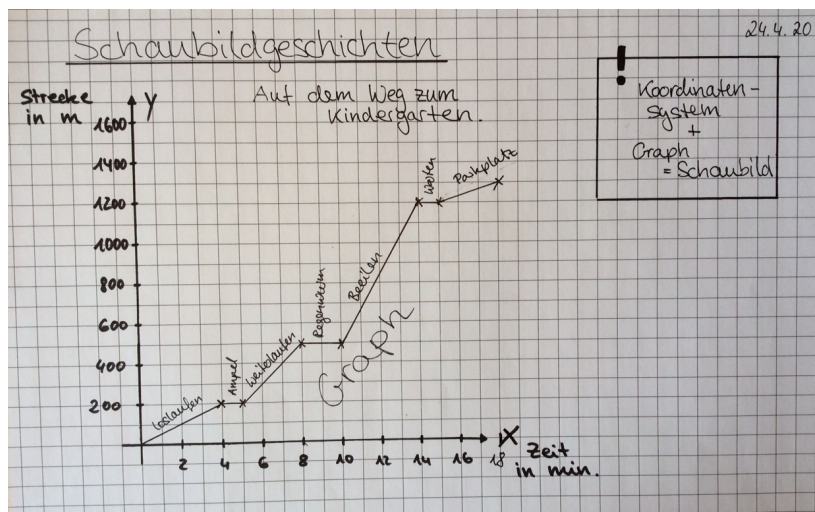 24.4.20
Schaubildgeschichten
Auf dem Weg zum
Kindergarten.
!
Koordinaten-
system
+
Graph
= Schaubild
Strecke
in m
y
1600
1400
1200
1000
800
600
400
200
Loslaufen
Ampel
Weiterlaufen
Regenwurm
Beeilen
Warten
Parkplatz
Graph
2 4 6 8 10 12 14 16 18
X
Zeit
in min.